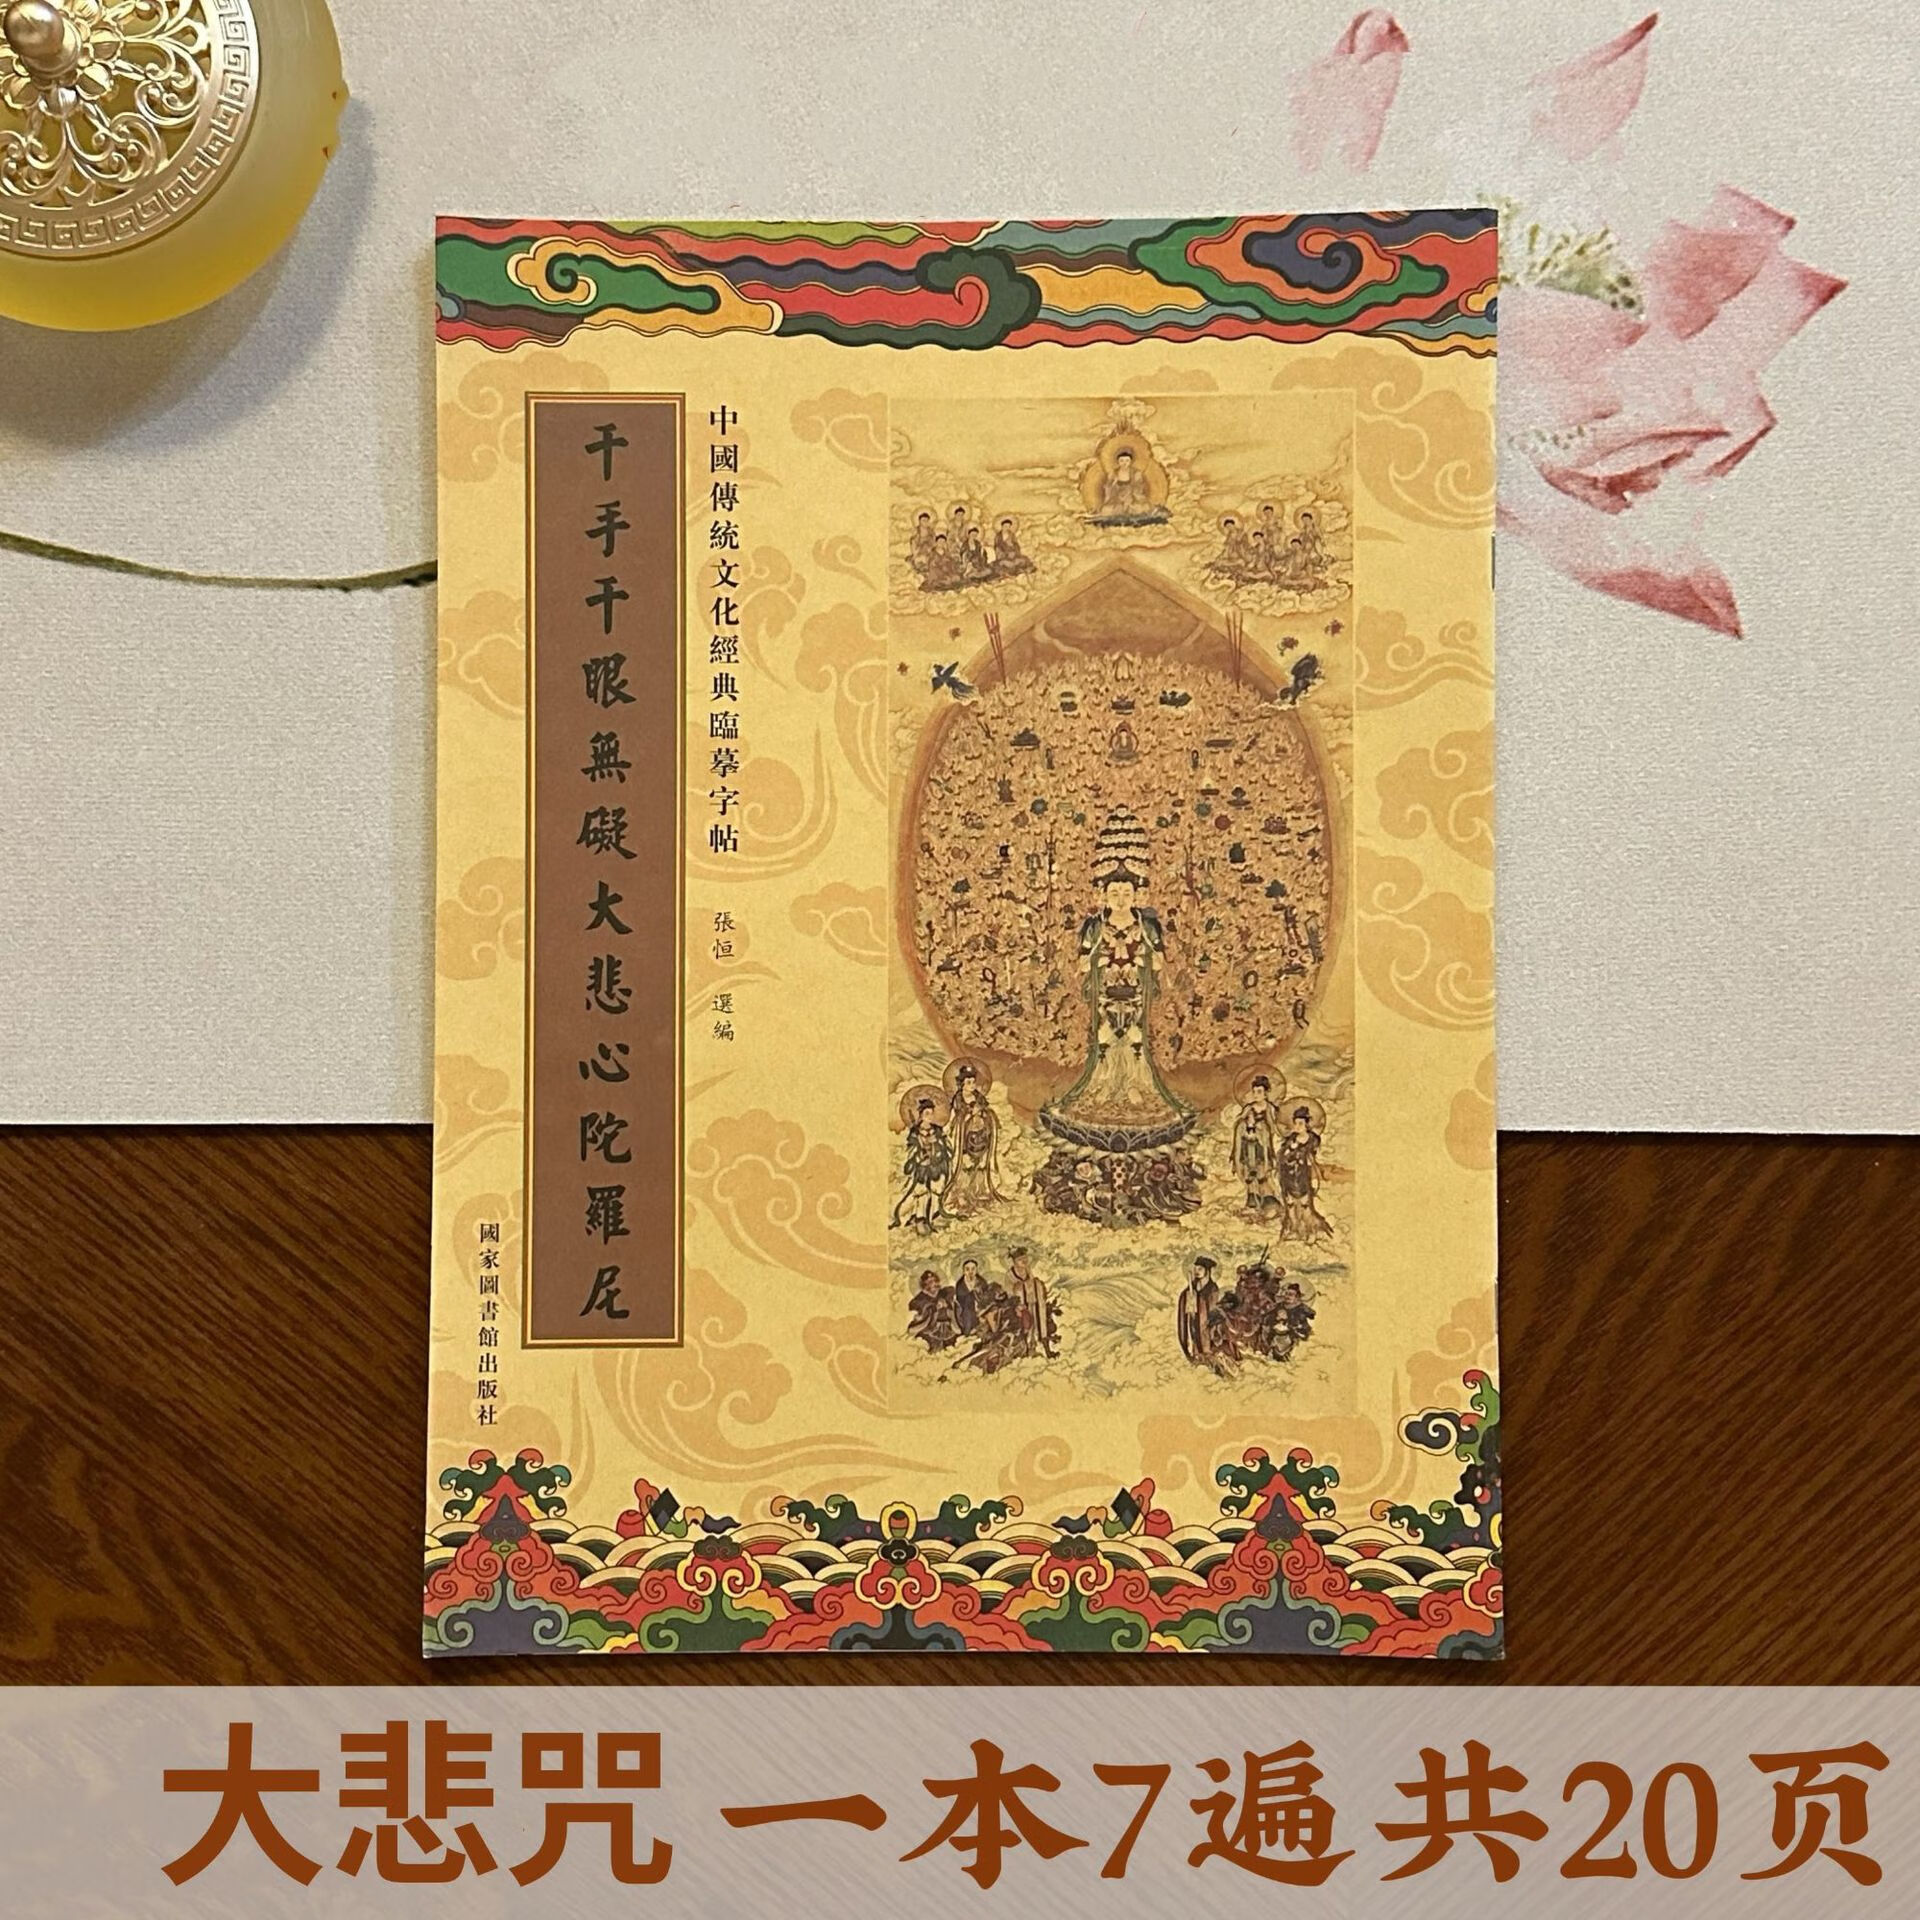 中國傳統文化經典臨摹字帖
張恒 選編
千手千眼無礙大悲心陀羅尼
國家圖書館出版社
大悲咒一本7遍共20页